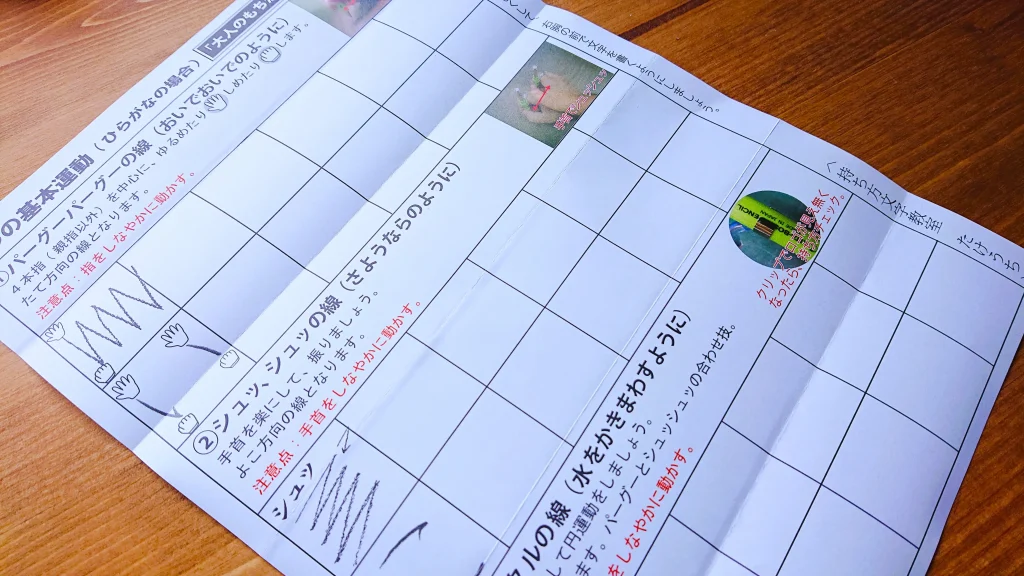 の基本運動（ひらがなの場合）
「大人のもち
パーグーパーグーの線（おいでおいでのように）
4本指（親指以外）を中心に、ゆるめたり しめたり します。
たて方向の線となります。
注意点：指をしなやかに動かす。
②シュッ、シュッの線（さようならのように）
手首を楽にして、振りましょう。
よこ方向の線となります。
注意点：手首をしなやかに動かす。
シュッ
右胸の前で文字を書くようにしましょう。
クルの線（水をかきまわすように）
して円運動をしましょう。
ます。パーグーとシュッシュッの合わせ技。
をしなやかに動かす。
PENCIL
クリップで
なったら
チェック。
へ持ち方文字教室 たけうち